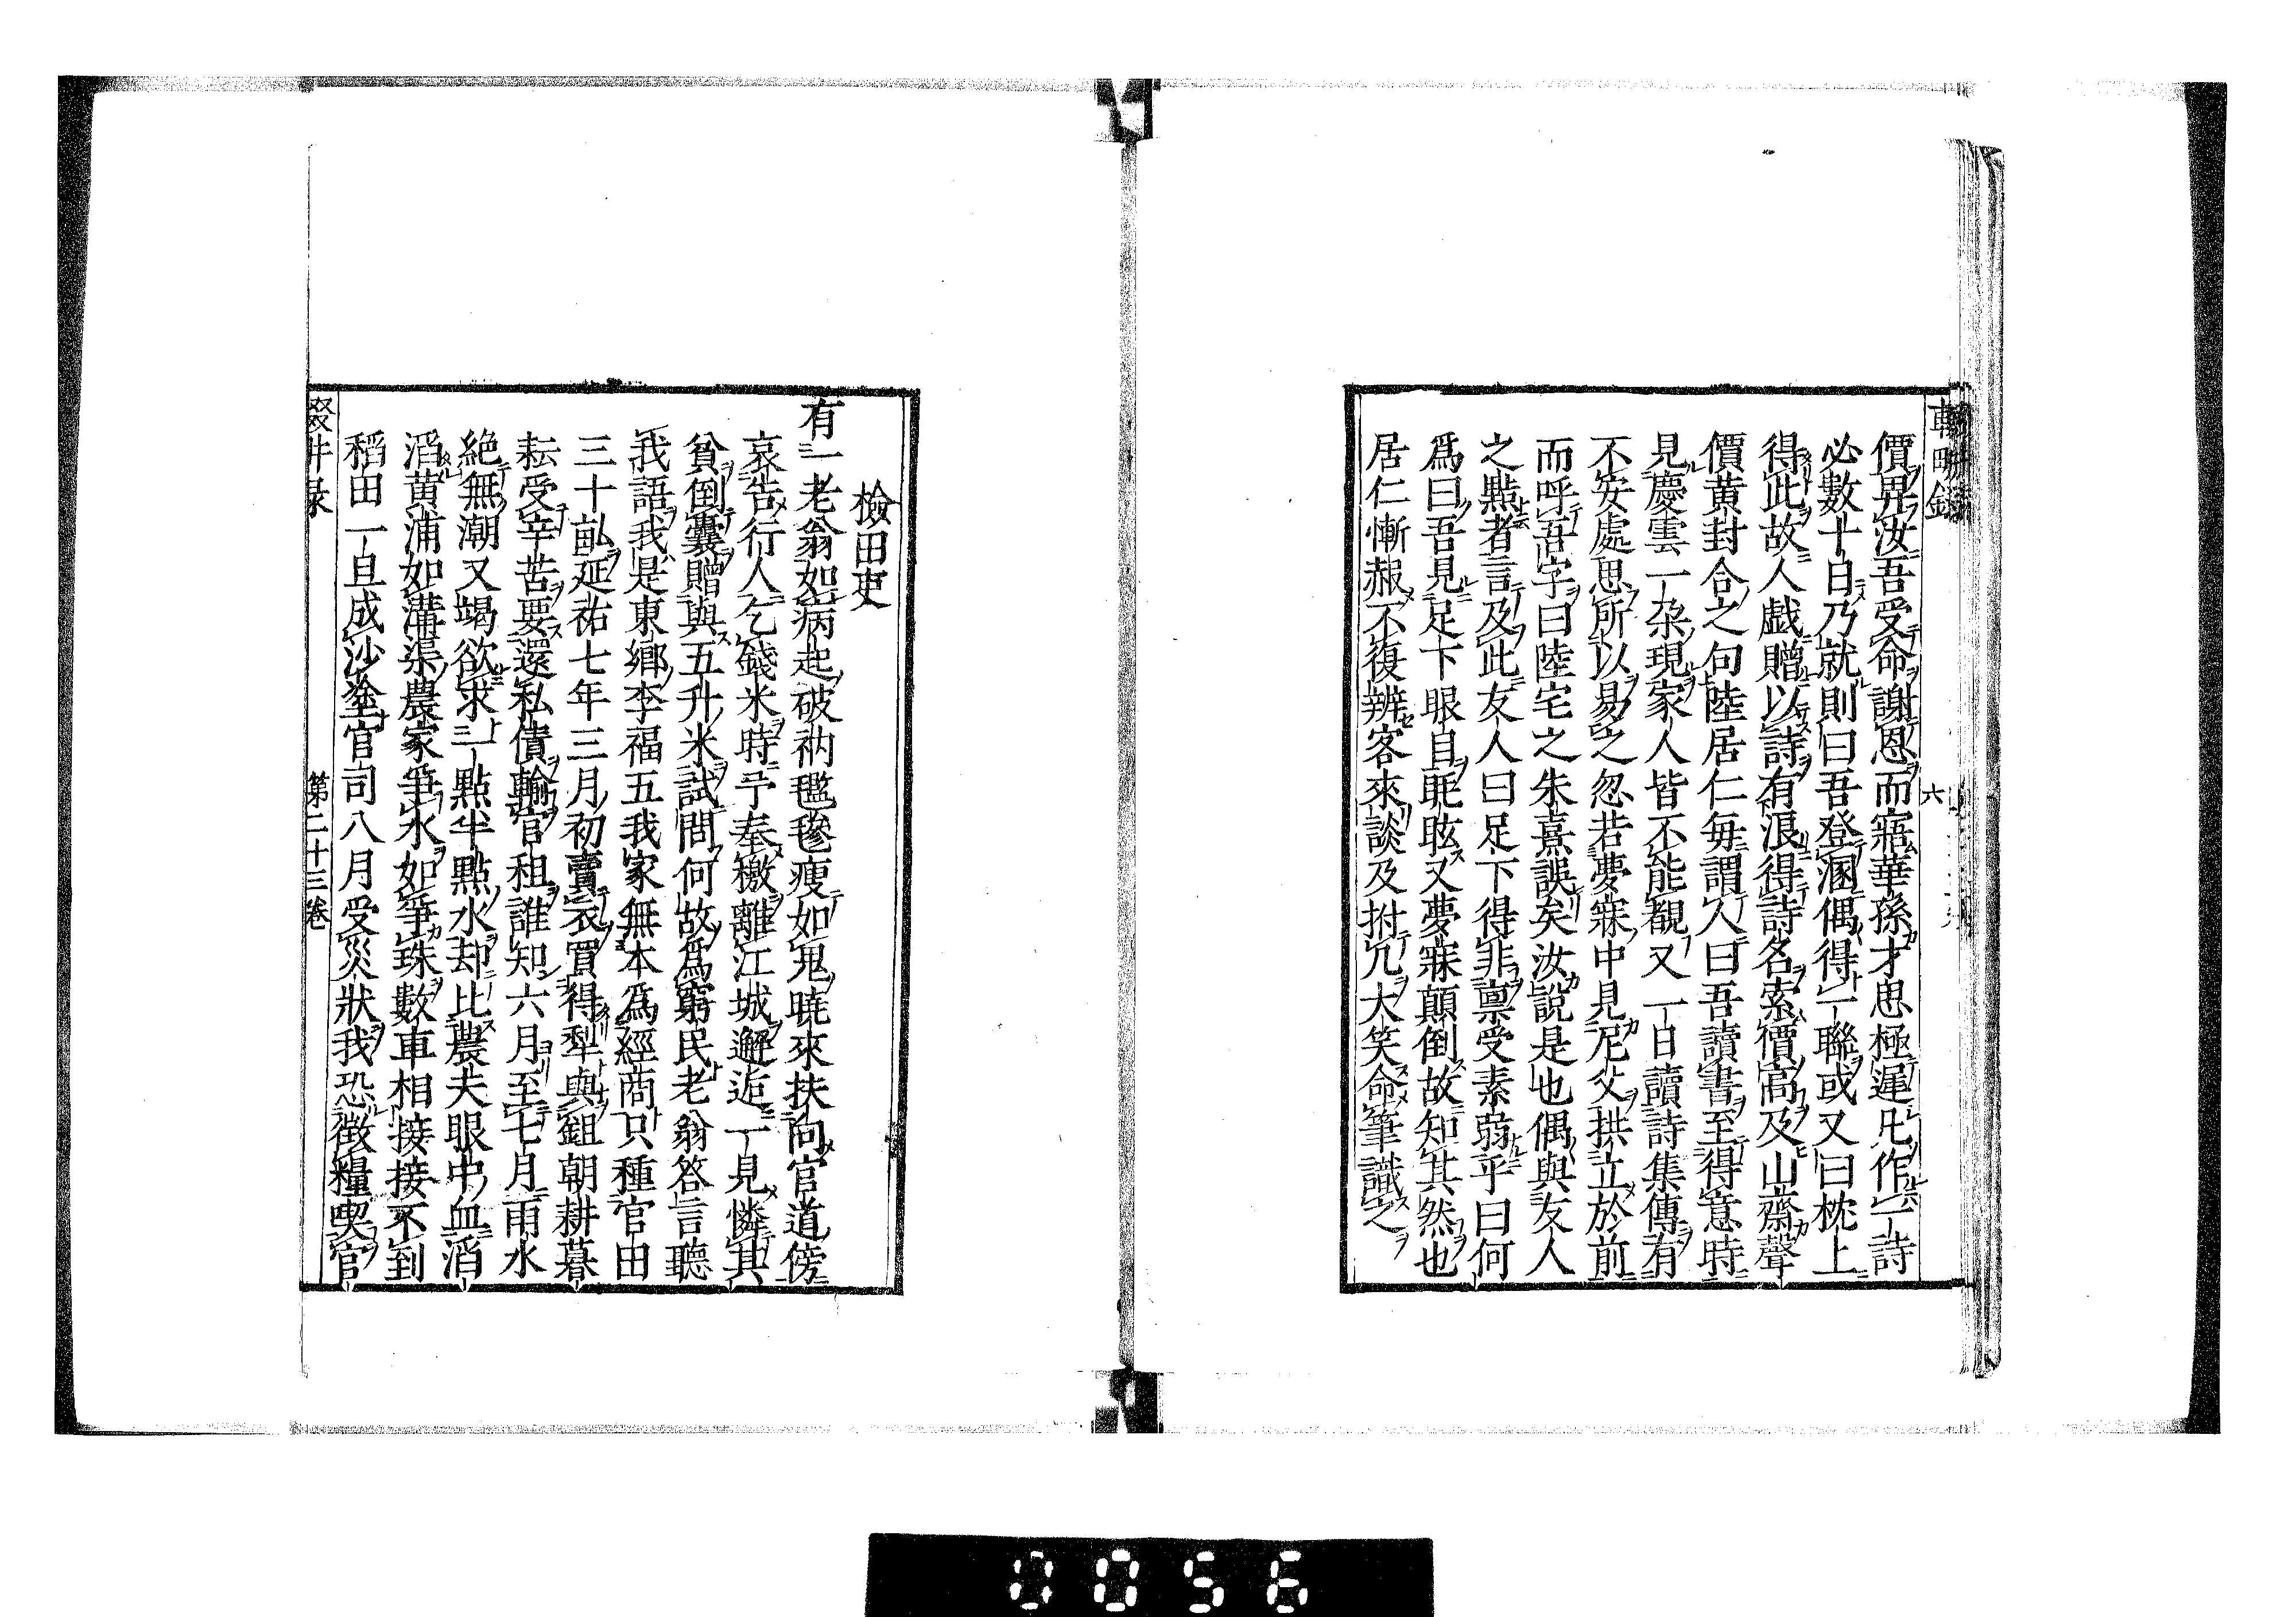 輟畊錄
六
價畀汝吾受命謝恩而寤華孫才思極遲凡作一詩
必數十日乃就則曰吾登溷偶得一聯或又曰枕上
得此故人戲贈以詩有浪得詩名索價高及山齋聲
價黃封合之句陸居仁每謂人曰吾讀書至得意時
見慶雲一朶現家人皆不能覩又一日讀詩集傳有
不安處思所以易之忽若夢寐中見尼父拱立於前
而呼吾字曰陸宅之朱熹誤矣汝說是也偶與友人
之點者言及此友人曰足下得非禀受素弱乎曰何
爲曰吾見足下眼目眊眩又夢寐顛倒故知其然也
居仁慚赧不復辨客來談及拊几大笑命筆識之
檢田吏
有一老翁如病起破衲𣰽毿瘦如鬼曉來扶向官道傍
哀告行人乞錢米時予奉檄離江城邂逅一見憐其
貧倒囊贈與五升米試問何故爲窮民老翁答言聽
我語我是東鄉李福五我家無本爲經商只種官田
三十畝延祐七年三月初賣衣買得犁與鉏朝耕暮
耘受辛苦要還私債輸官租誰知六月至七月雨水
絶無潮又竭欲求一點半點水却比農夫眼中血滔
滔黃浦如溝渠農家爭水如爭珠數車相接接不到
稻田一旦成沙塗官司八月受災狀我恐徵糧喫官
第二十三卷